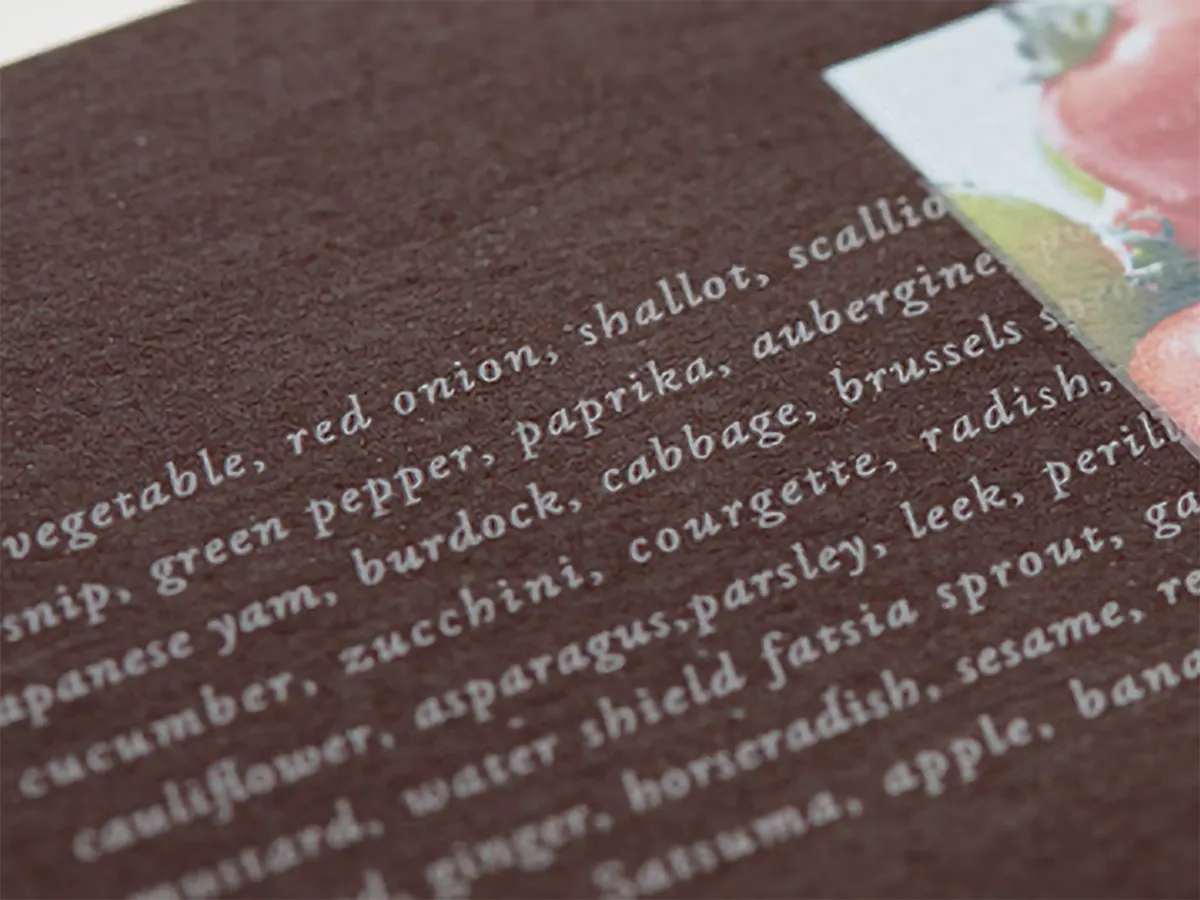 vegetable, red onion, shallot, scallio
snip, green pepper, paprika, aubergine,
apanese yam, burdock, cabbage, brussels sp
cucumber, zucchini, courgette, radish,
cauliflower, asparagus,parsley, leek, perill
mustard, water shield fatsia sprout, ga
d, ginger, horseradish, sesame, re
Satsuma, apple, bana